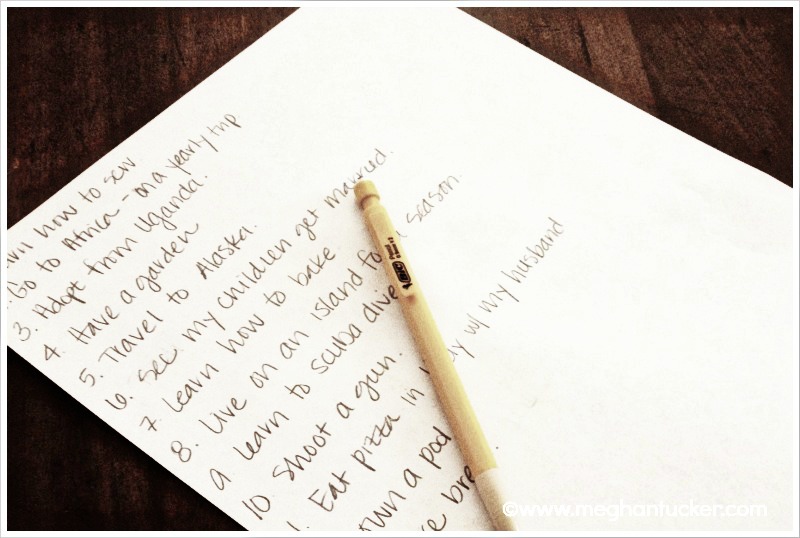 arn how to sew
Go to Africa - on a yearly trip
3. Adopt from Uganda.
4. Have a garden
5. Travel to Alaska.
6. See my children get married.
7. Learn how to bake
8. Live on an island fo season.
9 Learn to scuba dive
10 Shoot a gun.
1. Eat pizza in y w/ my husband
own a pool
e bre
BIC
©www.meghantucker.com